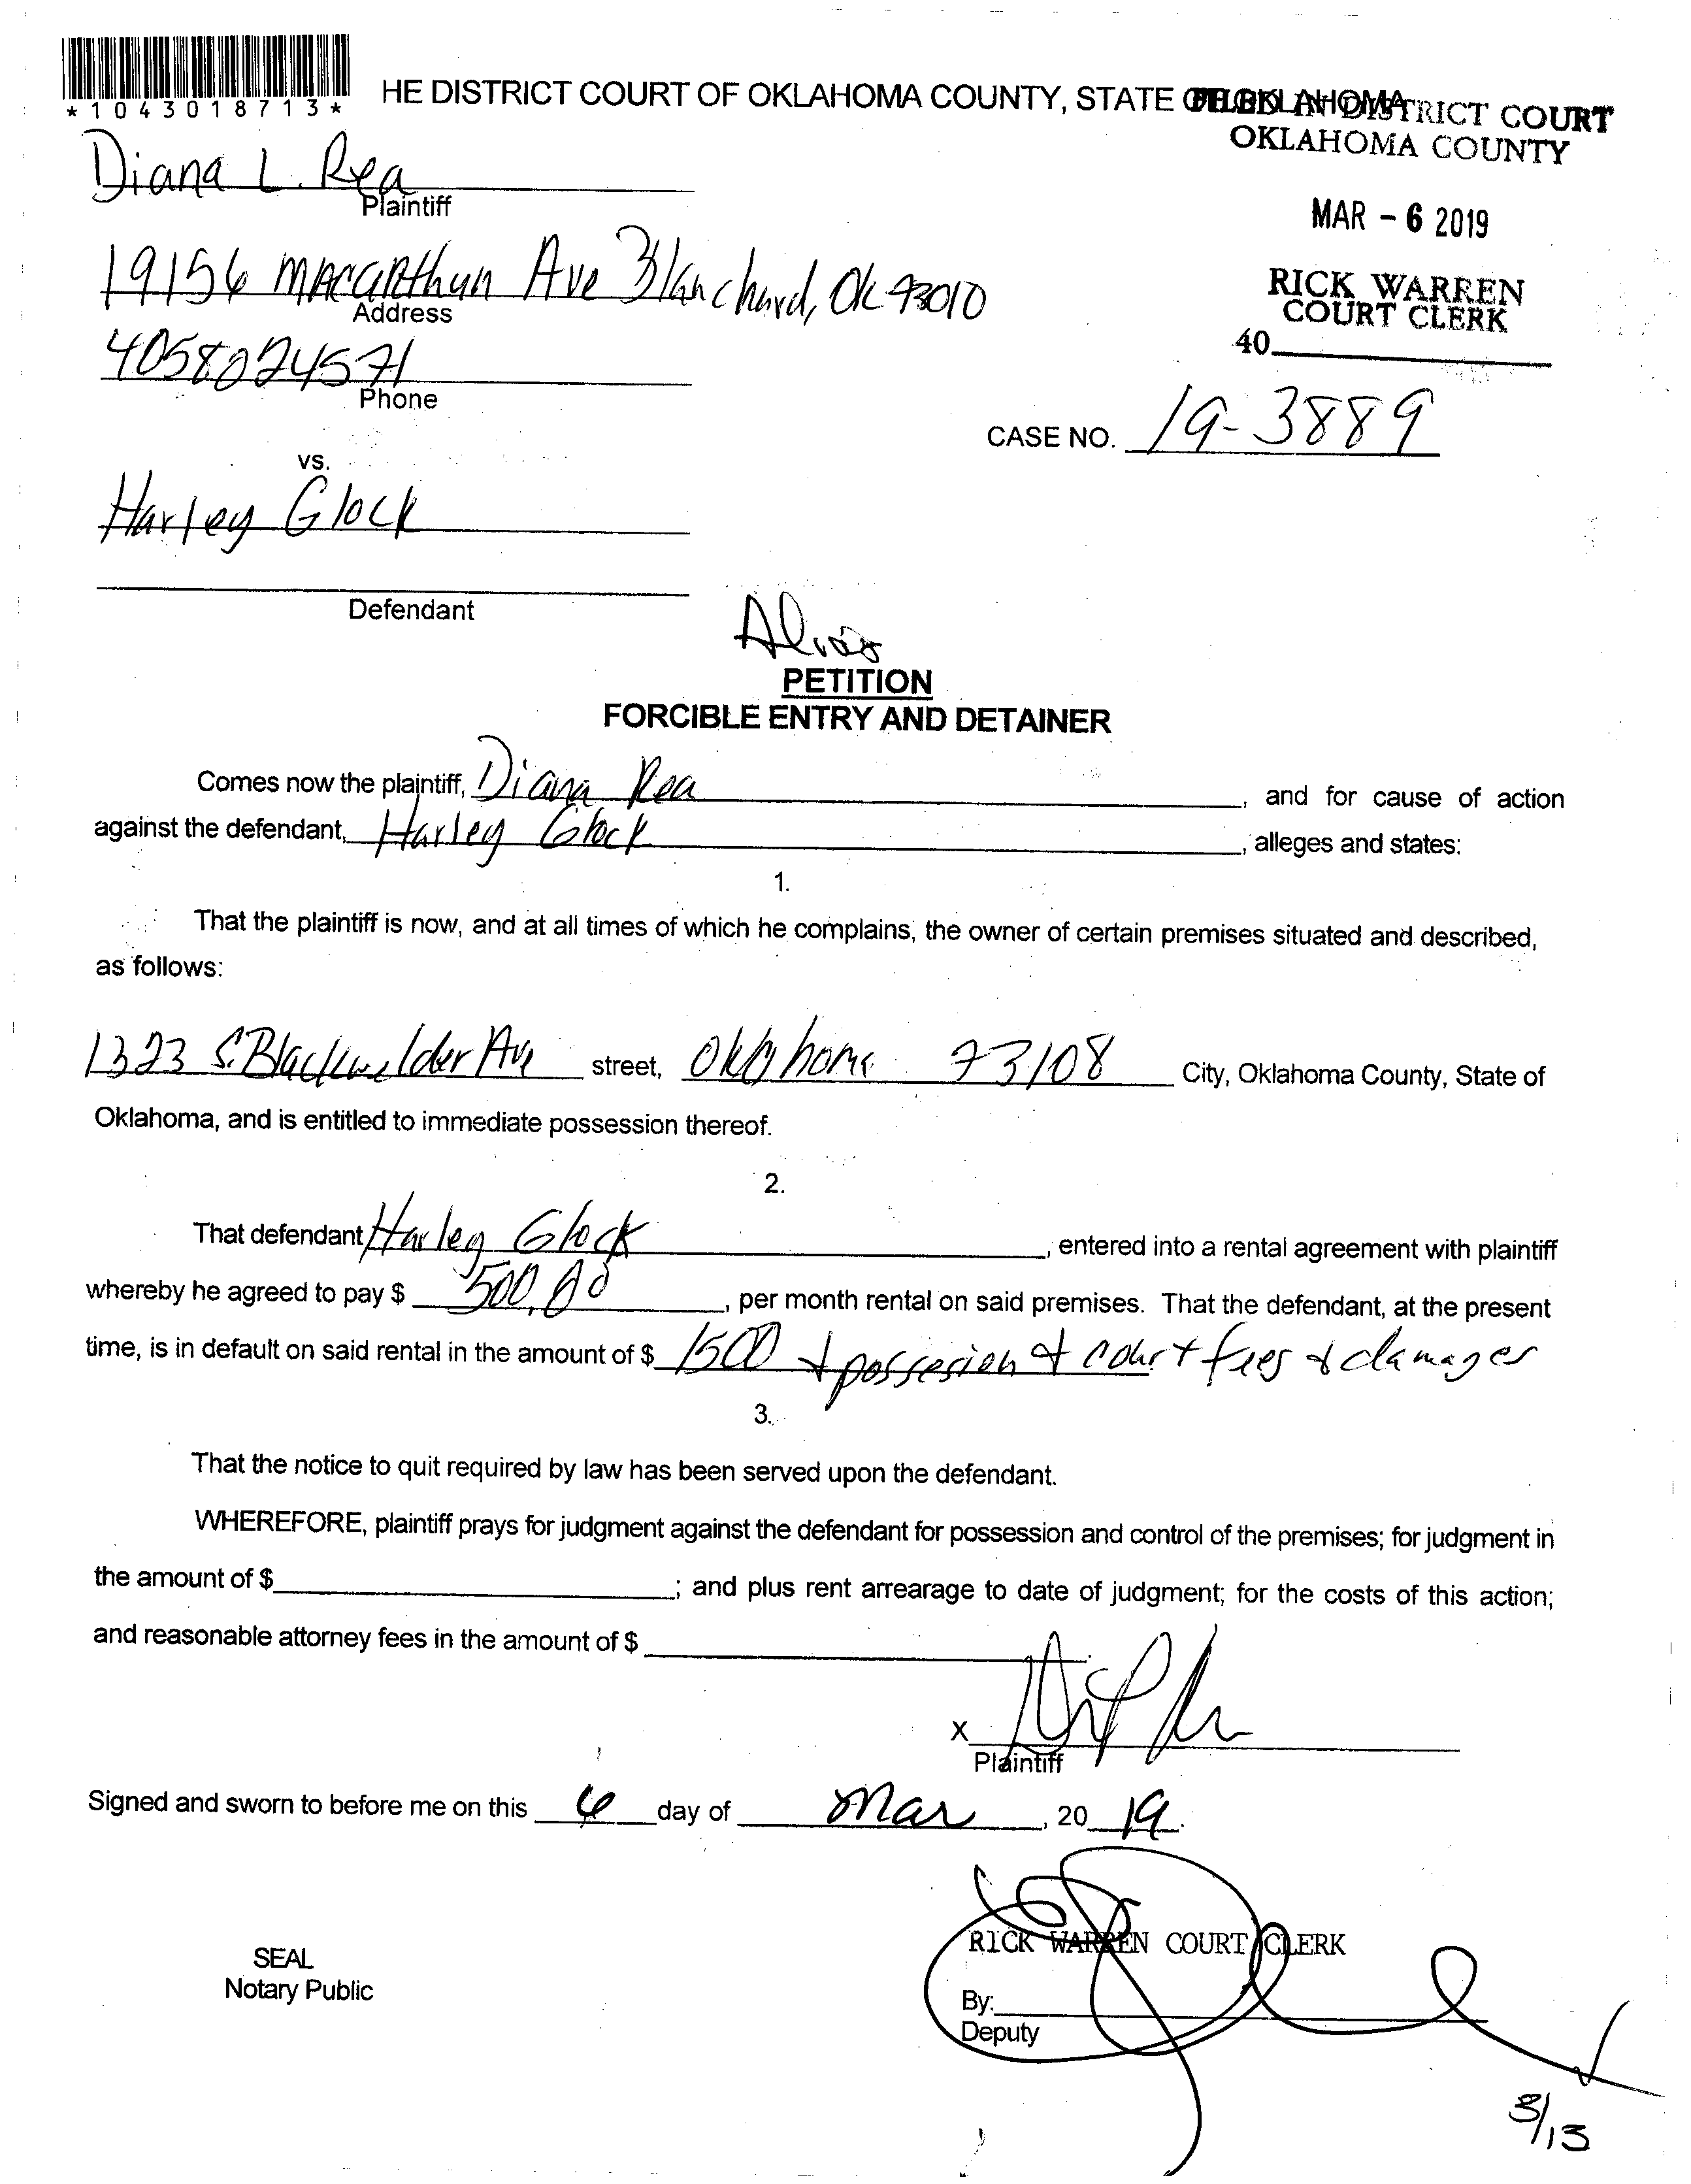 *1043018713*
HE DISTRICT COURT OF OKLAHOMA COUNTY, STATE OF OKLAHOMA
FILED IN DISTRICT COURT
OKLAHOMA COUNTY
MAR - 6 2019
RICK WARREN
COURT CLERK
40
Diana L. Rea
Plaintiff
19156 Macarthur Ave Blanchard, Ok 73010
Address
4058024571
Phone
CASE NO. 19-3889
vs.
Harley Glock
Defendant
Alias
PETITION
FORCIBLE ENTRY AND DETAINER
Comes now the plaintiff, Diana Rea, and for cause of action
against the defendant, Harley Glock, alleges and states:
1.
That the plaintiff is now, and at all times of which he complains, the owner of certain premises situated and described,
as follows:
1323 S. Blackwelder Ave street, Oklahoma 73108 City, Oklahoma County, State of
Oklahoma, and is entitled to immediate possession thereof.
2.
That defendant Harley Glock, entered into a rental agreement with plaintiff
whereby he agreed to pay $ 500.00, per month rental on said premises. That the defendant, at the present
time, is in default on said rental in the amount of $ 1500 + possesion + court fees + damages
3.
That the notice to quit required by law has been served upon the defendant.
WHEREFORE, plaintiff prays for judgment against the defendant for possession and control of the premises; for judgment in
the amount of $ ; and plus rent arrearage to date of judgment; for the costs of this action;
and reasonable attorney fees in the amount of $ .
X
Plaintiff
Signed and sworn to before me on this 6 day of Mar, 20 19.
RICK WARREN COURT CLERK
SEAL
Notary Public
By:
Deputy
3/13